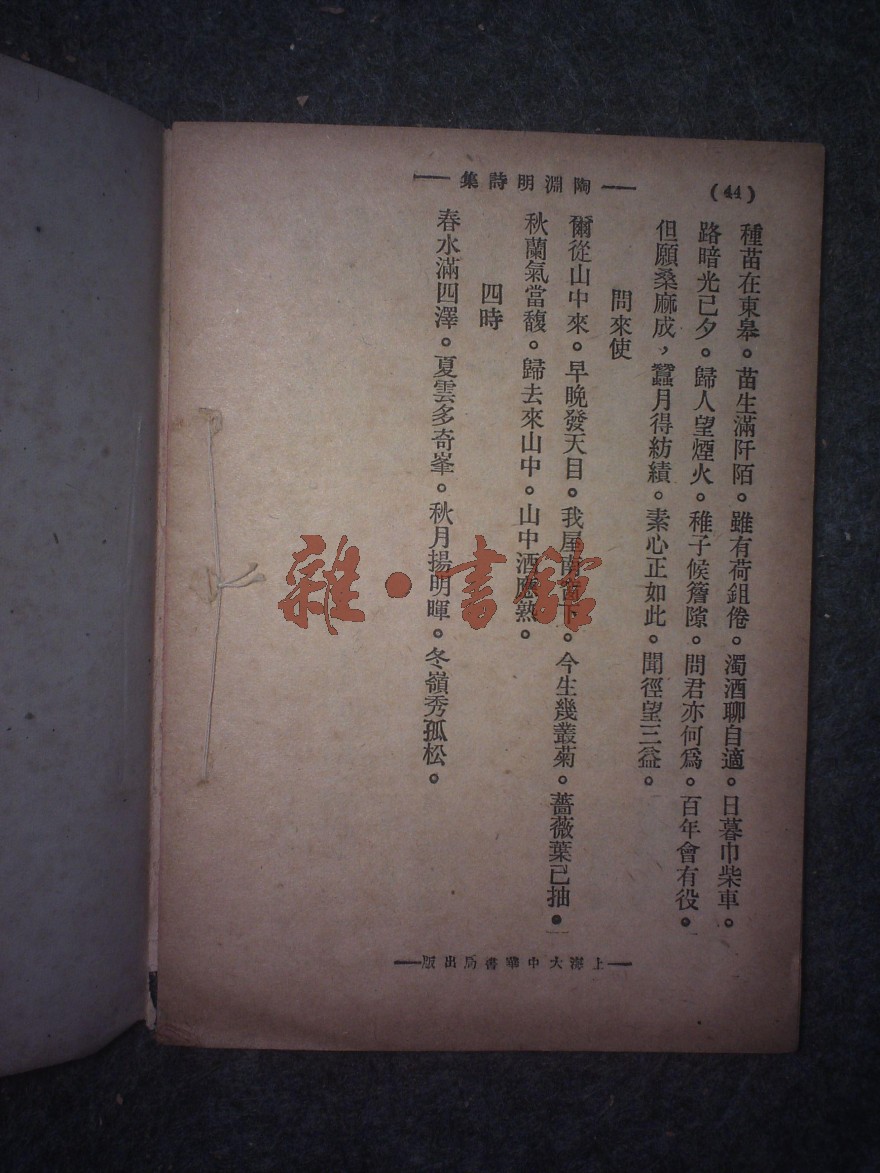 (44)
——陶淵明詩集——
種苗在東皋。苗生滿阡陌。雖有荷鉏倦。濁酒聊自適。日暮巾柴車。
路暗光已夕。歸人望煙火。稚子候簷隙。問君亦何爲。百年會有役。
但願桑麻成，蠶月得紡績。素心正如此。聞徑望三益。
問來使
爾從山中來。早晚發天目。我屋南窗下。今生幾叢菊。薔薇葉已抽。
秋蘭氣當馥。歸去來山中。山中酒應熟。
四時
春水滿四澤。夏雲多奇峯。秋月揚明暉。冬嶺秀孤松。
——上海大中華書局出版——
雜·書館